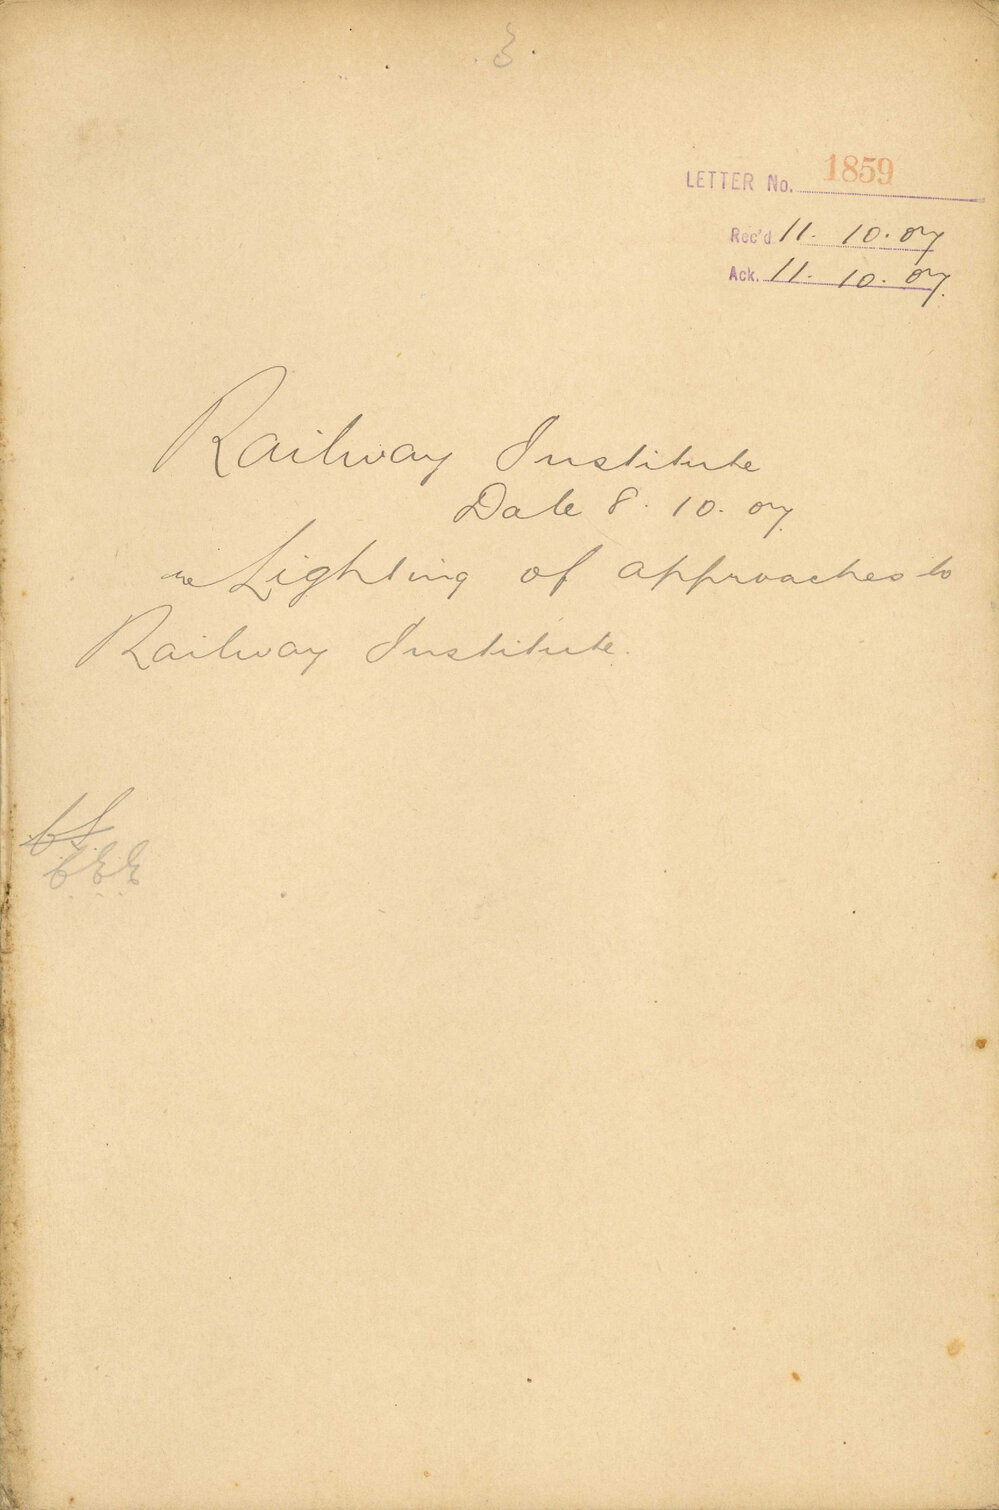 LETTER No. 1859
Rec'd 11. 10. 07
Ack. 11. 10. 07.
Railway Institute
Date 8. 10. 07.
re Lighting of approaches to
Railway Institute.